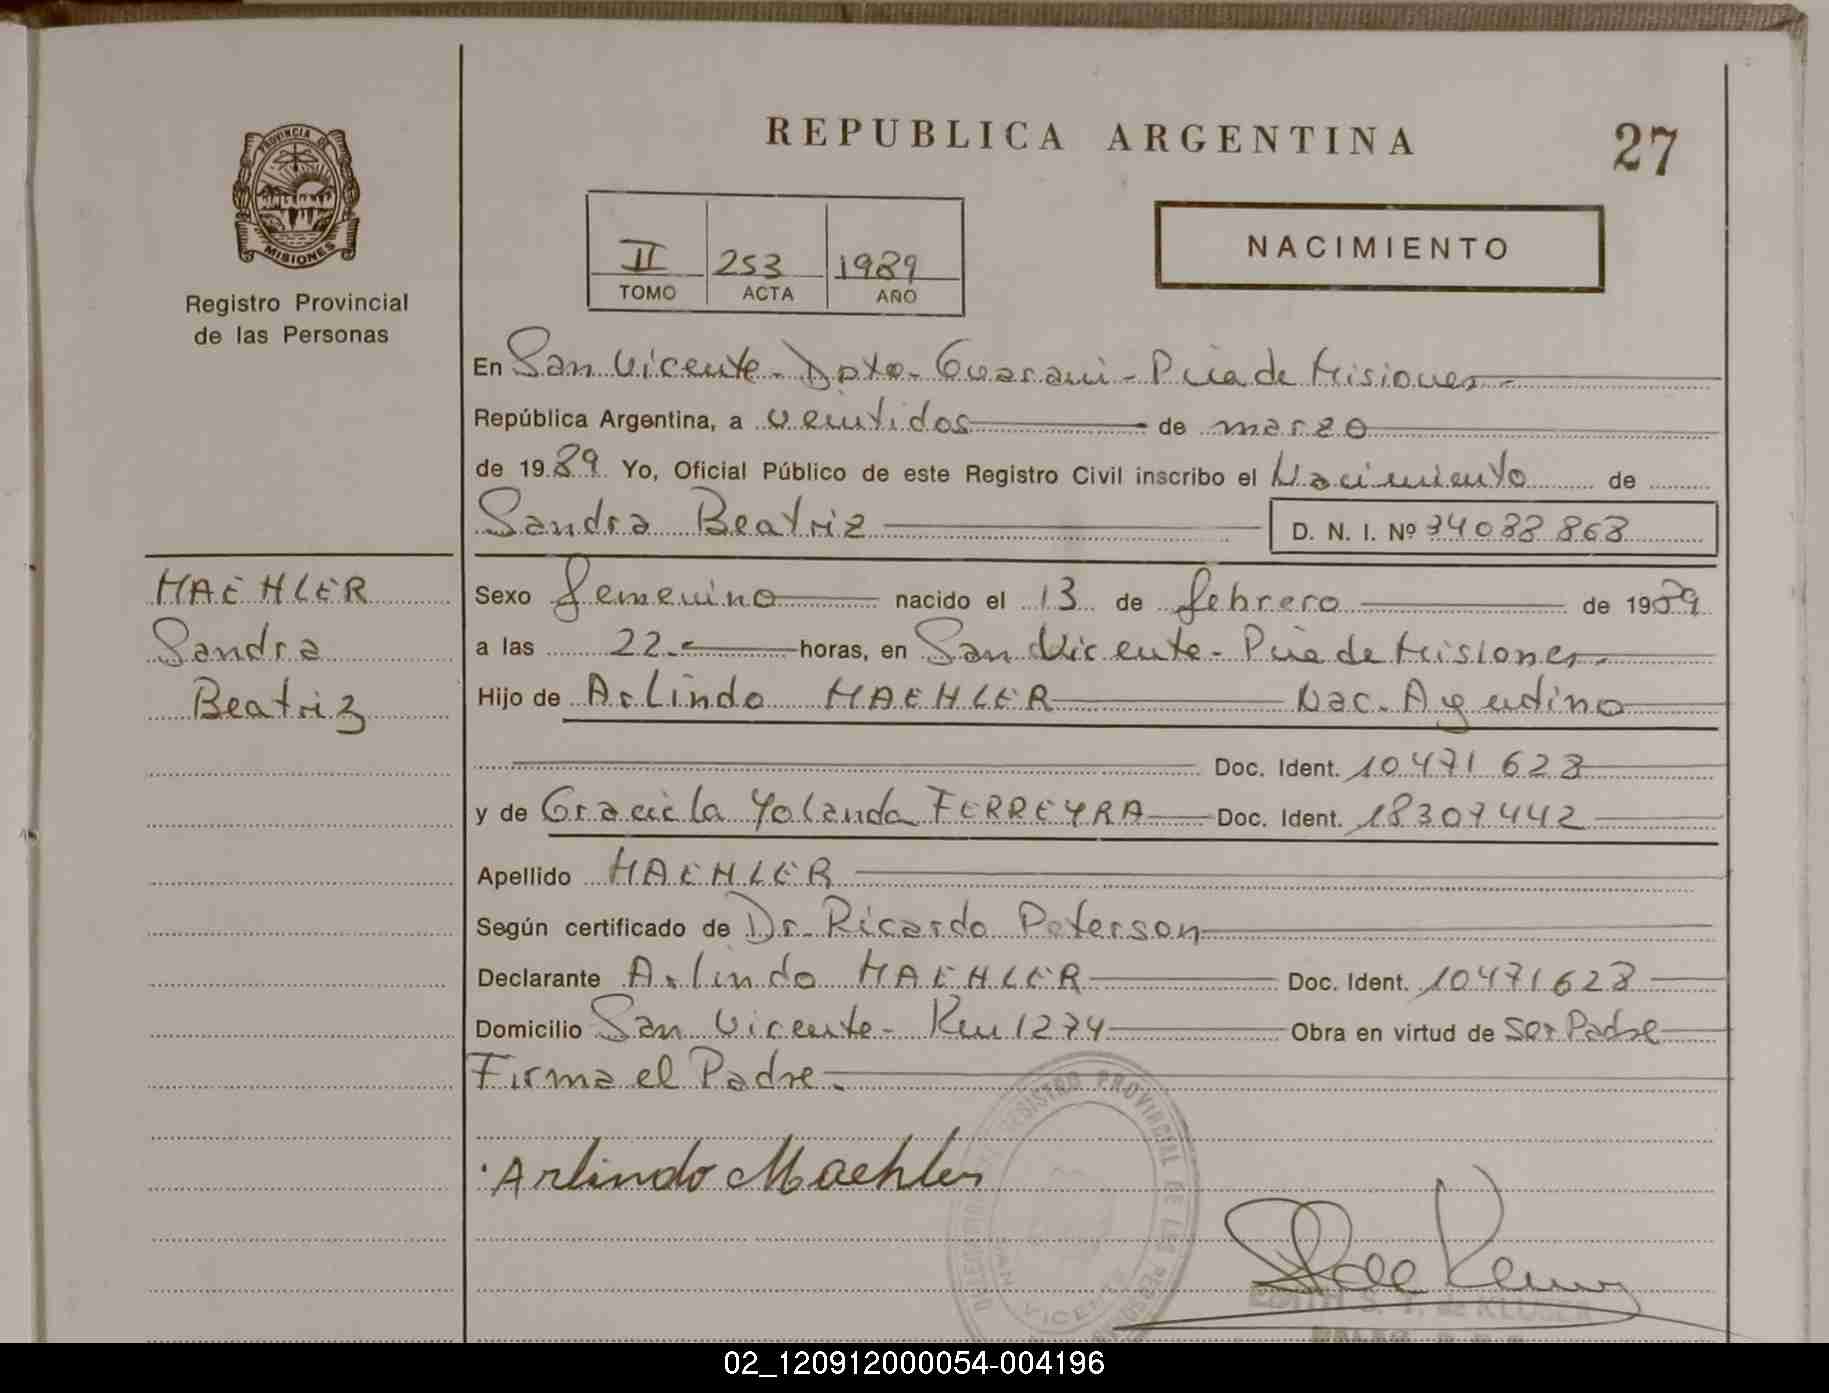 REPUBLICA ARGENTINA
27
PROVINCIA DE
MISIONES
Registro Provincial
de las Personas
II 253 1989
TOMO ACTA AÑO
NACIMIENTO
En San Vicente - Dpto - Guarani - Pcia de Misiones -
República Argentina, a veintidos de marzo
de 1989 Yo, Oficial Público de este Registro Civil inscribo el Nacimiento de
Sandra Beatriz D. N. I. Nº 34088868
MAEHLER
Sandra
Beatriz
Sexo femenino nacido el 13 de febrero de 1989
a las 22.- horas, en San Vicente - Pcia de Misiones.
Hijo de Arlindo MAEHLER Nac. Argentino
Doc. Ident. 10471628
y de Graciela Yolanda FERREYRA Doc. Ident. 18307442
Apellido MAEHLER
Según certificado de Dr. Ricardo Peterson
Declarante Arlindo MAEHLER Doc. Ident. 10471628
Domicilio San Vicente - Km 1274 Obra en virtud de ser Padre
Firma el Padre.
Arlindo Maehler
REGISTRO PROVINCIAL DE LAS PERSONAS
SAN VICENTE
EDITH S. T. de KLUSEN
02_120912000054-004196